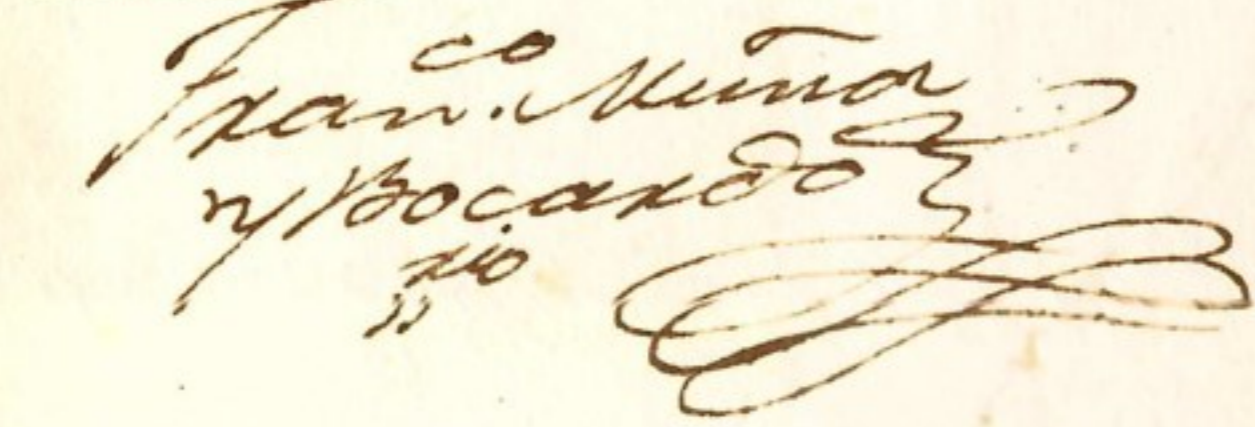 Fran.co Muñoz
y Bocardo